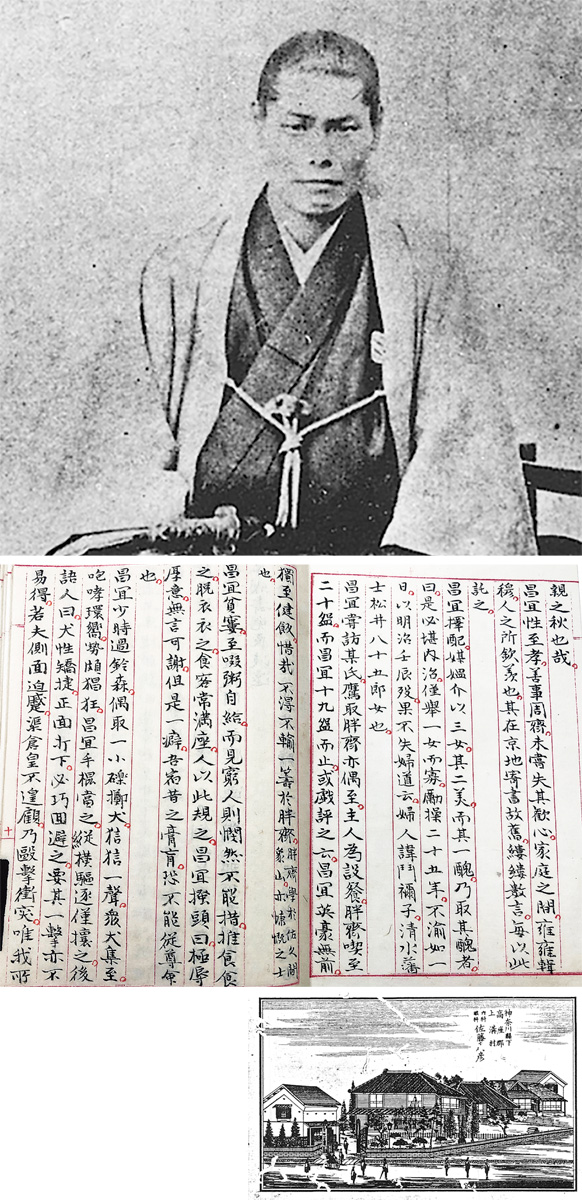 親之秋也哉
昌宜性至孝善事周齋未嘗失其歡心家庭之間雍雍輯
穆人之所欽羨也其在京地寄書故舊縷縷數言每以此
託之
昌宜擇配媒媼介以三女其二美而其一醜乃取其醜者
曰是必堪内治僅舉一女而寡勵操二十五年不渝如一
日以明治壬辰歿果不失婦道云婦人諱禰子清水藩
士松井八十五郎女也
昌宜嘗訪某氏鷹取胖齋亦偶至主人為設餐胖齋喫至
二十盌而昌宜十九盌而止或戲評之云昌宜英豪無前
獨至健飲惜哉不得不輸一籌於胖齋胖齋學於佐久間
象山亦慷慨之士
也
昌宜貧窶至啜粥自給而見窮人則憫然不能措推食食
之脱衣衣之食客常滿座人以此規之昌宜撓頭曰極辱
厚意無言可謝但是一癖吾宿昔之膏肓恐不能從尊命
也
昌宜少時過鈴森偶取一小礫擲犬狺狺一聲發犬集至
咆哮環嚮勢頗猖狂昌宜手棍當之縱横驅逐僅攘之後
語人曰犬性矯捷正面打下必巧回避之要其一擊亦不
易得若夫側面迫蹙渠倉皇不遑顧乃毆擊衝突唯我所
十
神奈川縣下
高座郡
上溝村
内科
眼科
佐藤彦